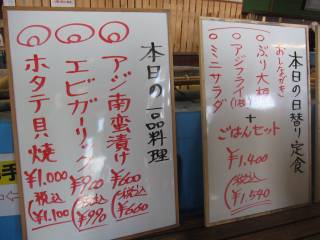 本日の日替り定食
おしながき
ぶり大根
アジフライ(1枚)
ミニサラダ
+
ごはんセット
¥1,400
(税込 ¥1,540)
本日の一品料理
アジ南蛮漬け
¥600
(税込 ¥660)
エビガーリック
¥900
(税込 ¥990)
ホタテ貝焼
¥1,000
税込
¥1,100